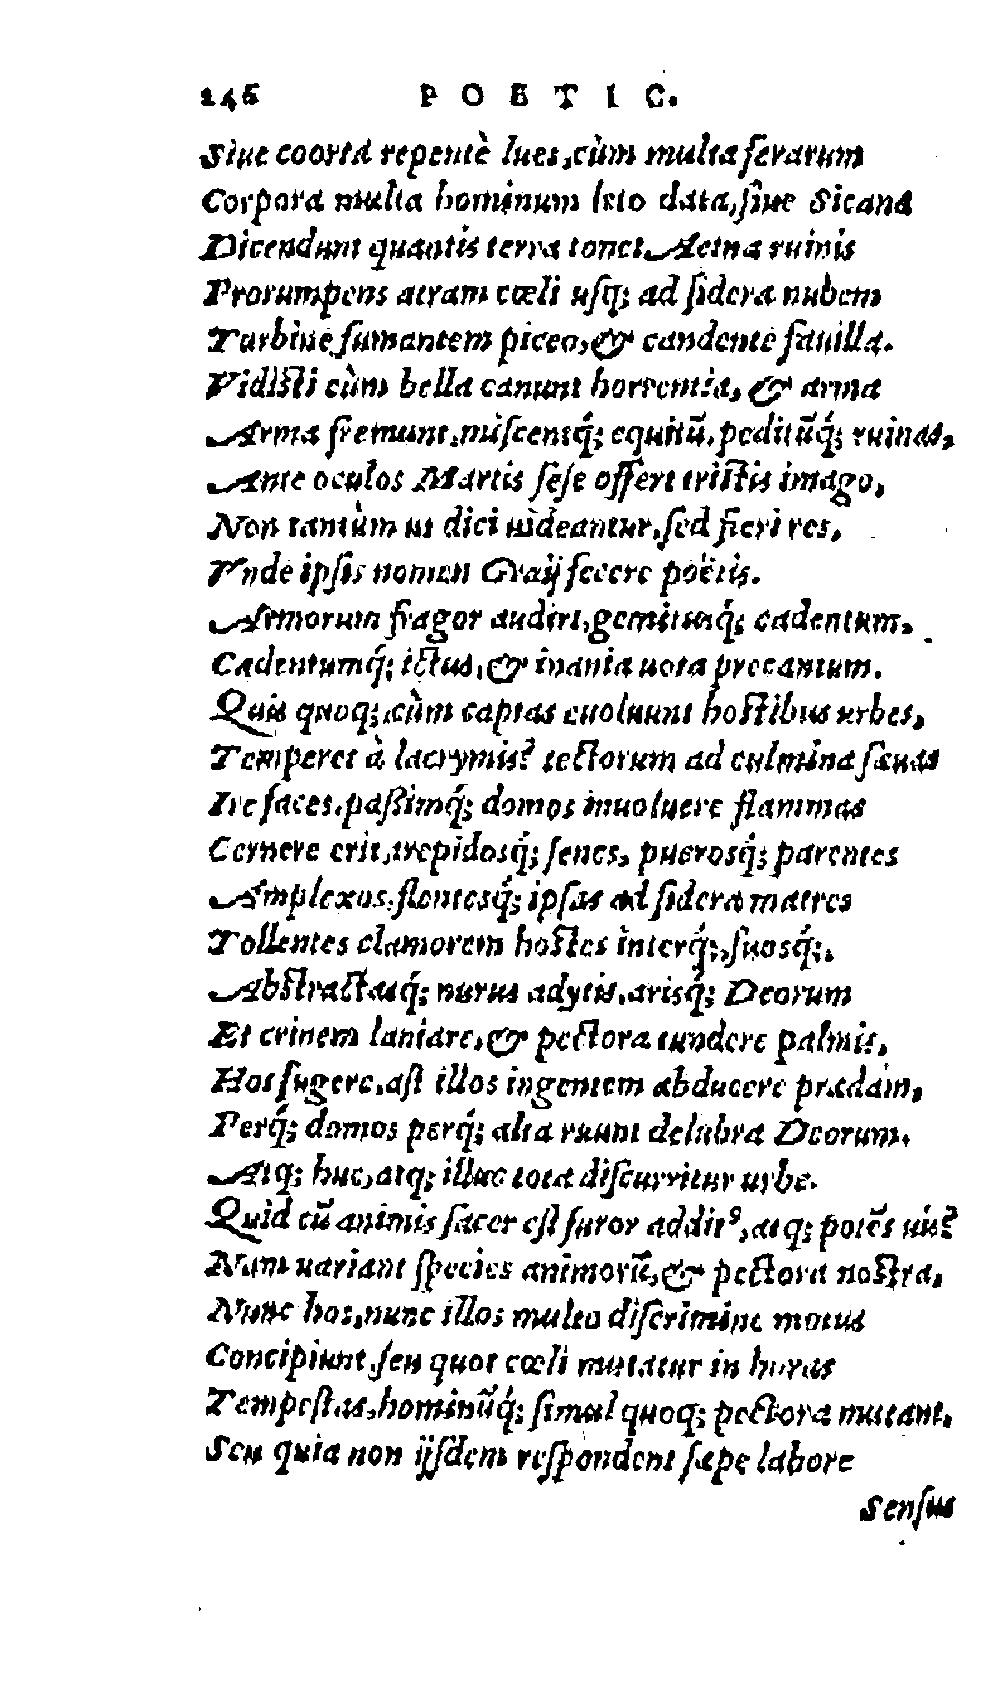 246 POETIC.
Siue coorta repentè lues, cùm multa ferarum
Corpora multa hominum leto data, ſiue Sicana
Dicendum quantis terra tonet Aetna ruinis
Prorumpens atram cœli uſq; ad ſidera nubem
Turbine fumantem piceo, & candente fauilla.
Vidiſti cùm bella canunt horrentia, & arma
Arma fremunt, miſcentq́; equitũ, peditũq́; ruinas,
Ante oculos Martis ſeſe offert triſtis imago,
Non tantùm ut dici uideantur, ſed fieri res,
Vnde ipſis nomen Graij fecere poëtis.
Armorum fragor audiri, gemitusq́; cadentum,
Cadentumq́; ictus, & inania uota precantum.
Quis quoq; cùm captas euoluunt hoſtibus urbes,
Temperet à lacrymis? tectorum ad culmina ſæuas
Ire faces, paßimq́; domos inuoluere flammas
Cernere erit, trepidosq́; ſenes, puerosq́; parentes
Amplexos, flentesq́; ipſas ad ſidera matres
Tollentes clamorem hoſtes interq́;, ſuosq́;,
Abſtractasq́; nurus adytis, arisq́; Deorum
Et crinem laniare, & pectora tundere palmis,
Hos fugere, aſt illos ingentem abducere prædam,
Perq́; domos perq́; alta ruunt delubra Deorum,
Atq; huc, atq; illuc tota diſcurritur urbe.
Quid cũ animis ſacer eſt furor additꝰ, atq; potẽs uis?
Nam uariant ſpecies animorũ, & pectora noſtra,
Nunc hos, nunc illos multo diſcrimine motus
Concipiunt, ſeu quot cœli mutatur in horas
Tempeſtas, hominũq́; ſimul quoq; pectora mutant,
Seu quia non ijſdem reſpondent ſæpe labore
Senſus